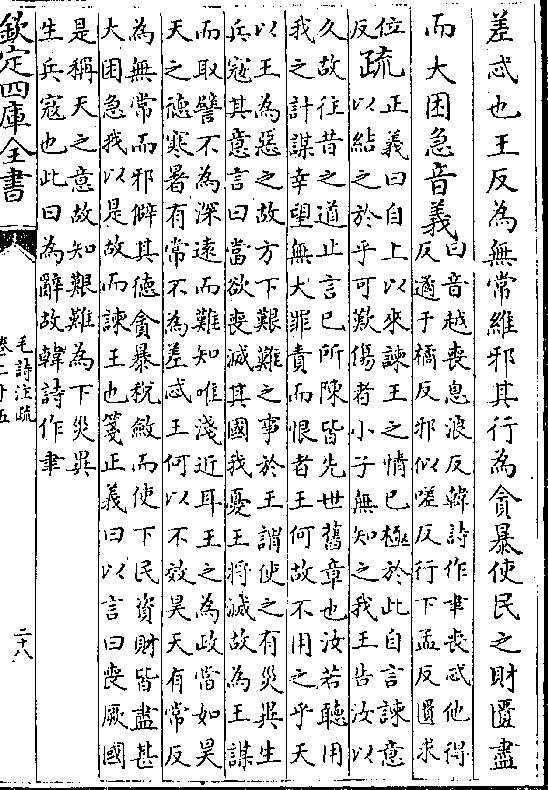 差忒也王反為無常維邪其行為貪暴使民之財匱盡
而大困急音義
曰音越喪息浪反韓詩作聿喪忒他得
反遹于橘反邪似嗟反行下孟反匱求
位
反
疏
正義曰自上以來諫王之情已極於此自言諫意
以結之於乎可歎傷者小子無知之我王告汝以
久故往昔之道止言已所陳皆先世舊章也汝若聽用
我之計謀幸望無大罪責而恨者王何故不用之乎天
以王為惡之故方下艱難之事於王謂使之有災異生
兵寇其意言曰當欲喪滅其國我憂王將滅故為王謀
而取譬不為深遠而難知唯淺近耳王之為政當如昊
天之德寒暑有常不為差忒王何以不效昊天有常反
為無常而邪僻其德貪暴稅斂而使下民資財皆盡甚
大困急我以是故而諫王也箋正義曰以言曰喪厥國
是稱天之意故知艱難為下災異
生兵寇也此曰為辭故韓詩作聿
欽定四庫全書
毛詩注疏
卷二十五
二十八